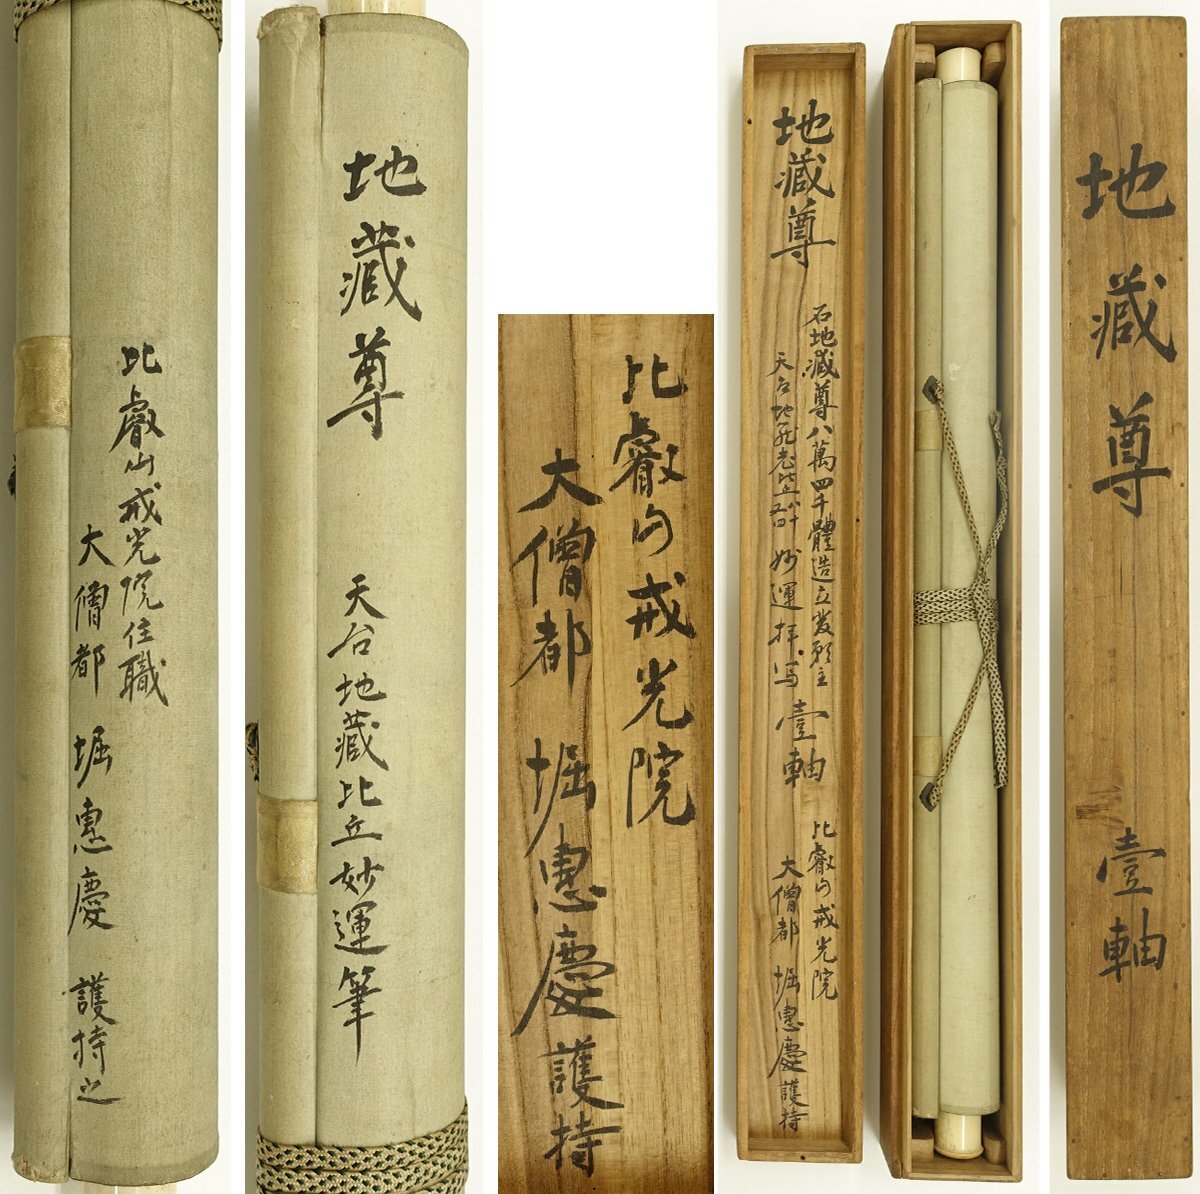 比叡山戒光院住職
大僧都 堀惠慶 護持之
地藏尊
天台地藏比丘妙運筆
比叡山戒光院
大僧都 堀惠慶 護持
地藏尊
石地藏尊八萬四千體造立發願主
天台地蔵老比丘 妙運拝写
壹軸
比叡山戒光院
大僧都 堀惠慶 護持
地藏尊
壹軸